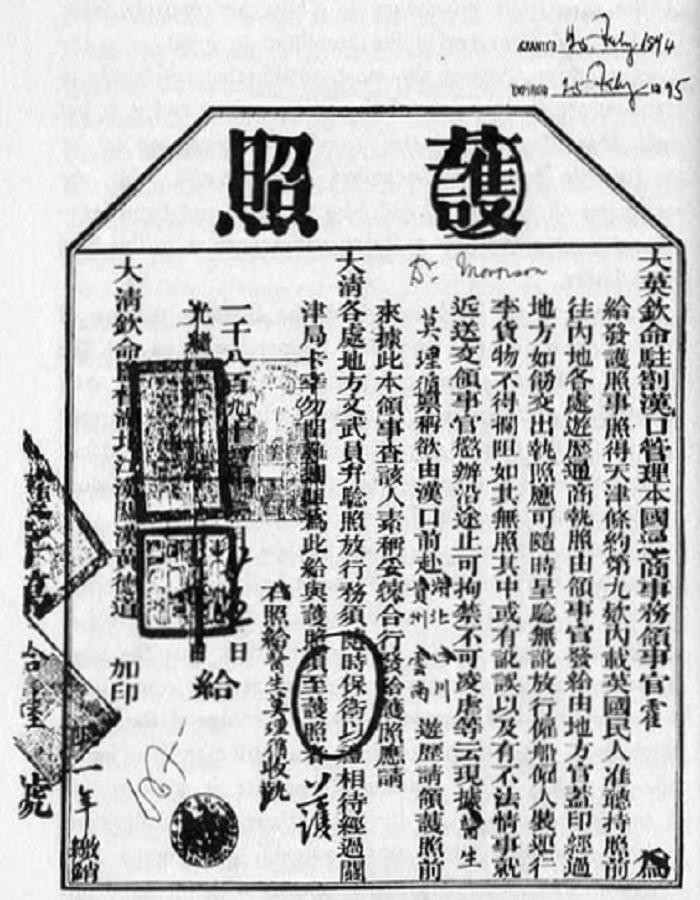 GRANTED 25 July 1894
EXPIRING 25 July 1895
護照
Dr. Morrison
大英欽命駐劄漢口管理本國通商事務領事官霍 為
給發護照事照得天津條約第九款內載英國民人准聽持照前
往內地各處遊歷通商執照由領事官發給由地方官蓋印經過
地方如飭交出執照應可隨時呈驗無訛放行僱船僱人裝運行
李貨物不得攔阻如其無照其中或有訛誤以及有不法情事就
近送交領事官懲辦沿途止可拘禁不可凌虐等云現據醫生
莫理循稟稱欲由漢口前赴湖北四川貴州雲南遊歷請領護照前
來據此本領事查該人素稱妥練合行發給護照應請
大清各處地方文武員弁驗照放行務須隨時保衛以禮相待經過關
津局卡幸勿阻攔為此給與護照須至護照者
右照給醫生莫理循收執
一千八百九十四年 日 給
光緒
大清欽命 湖北江漢關 漢黃德道 加印
限一年 繳銷